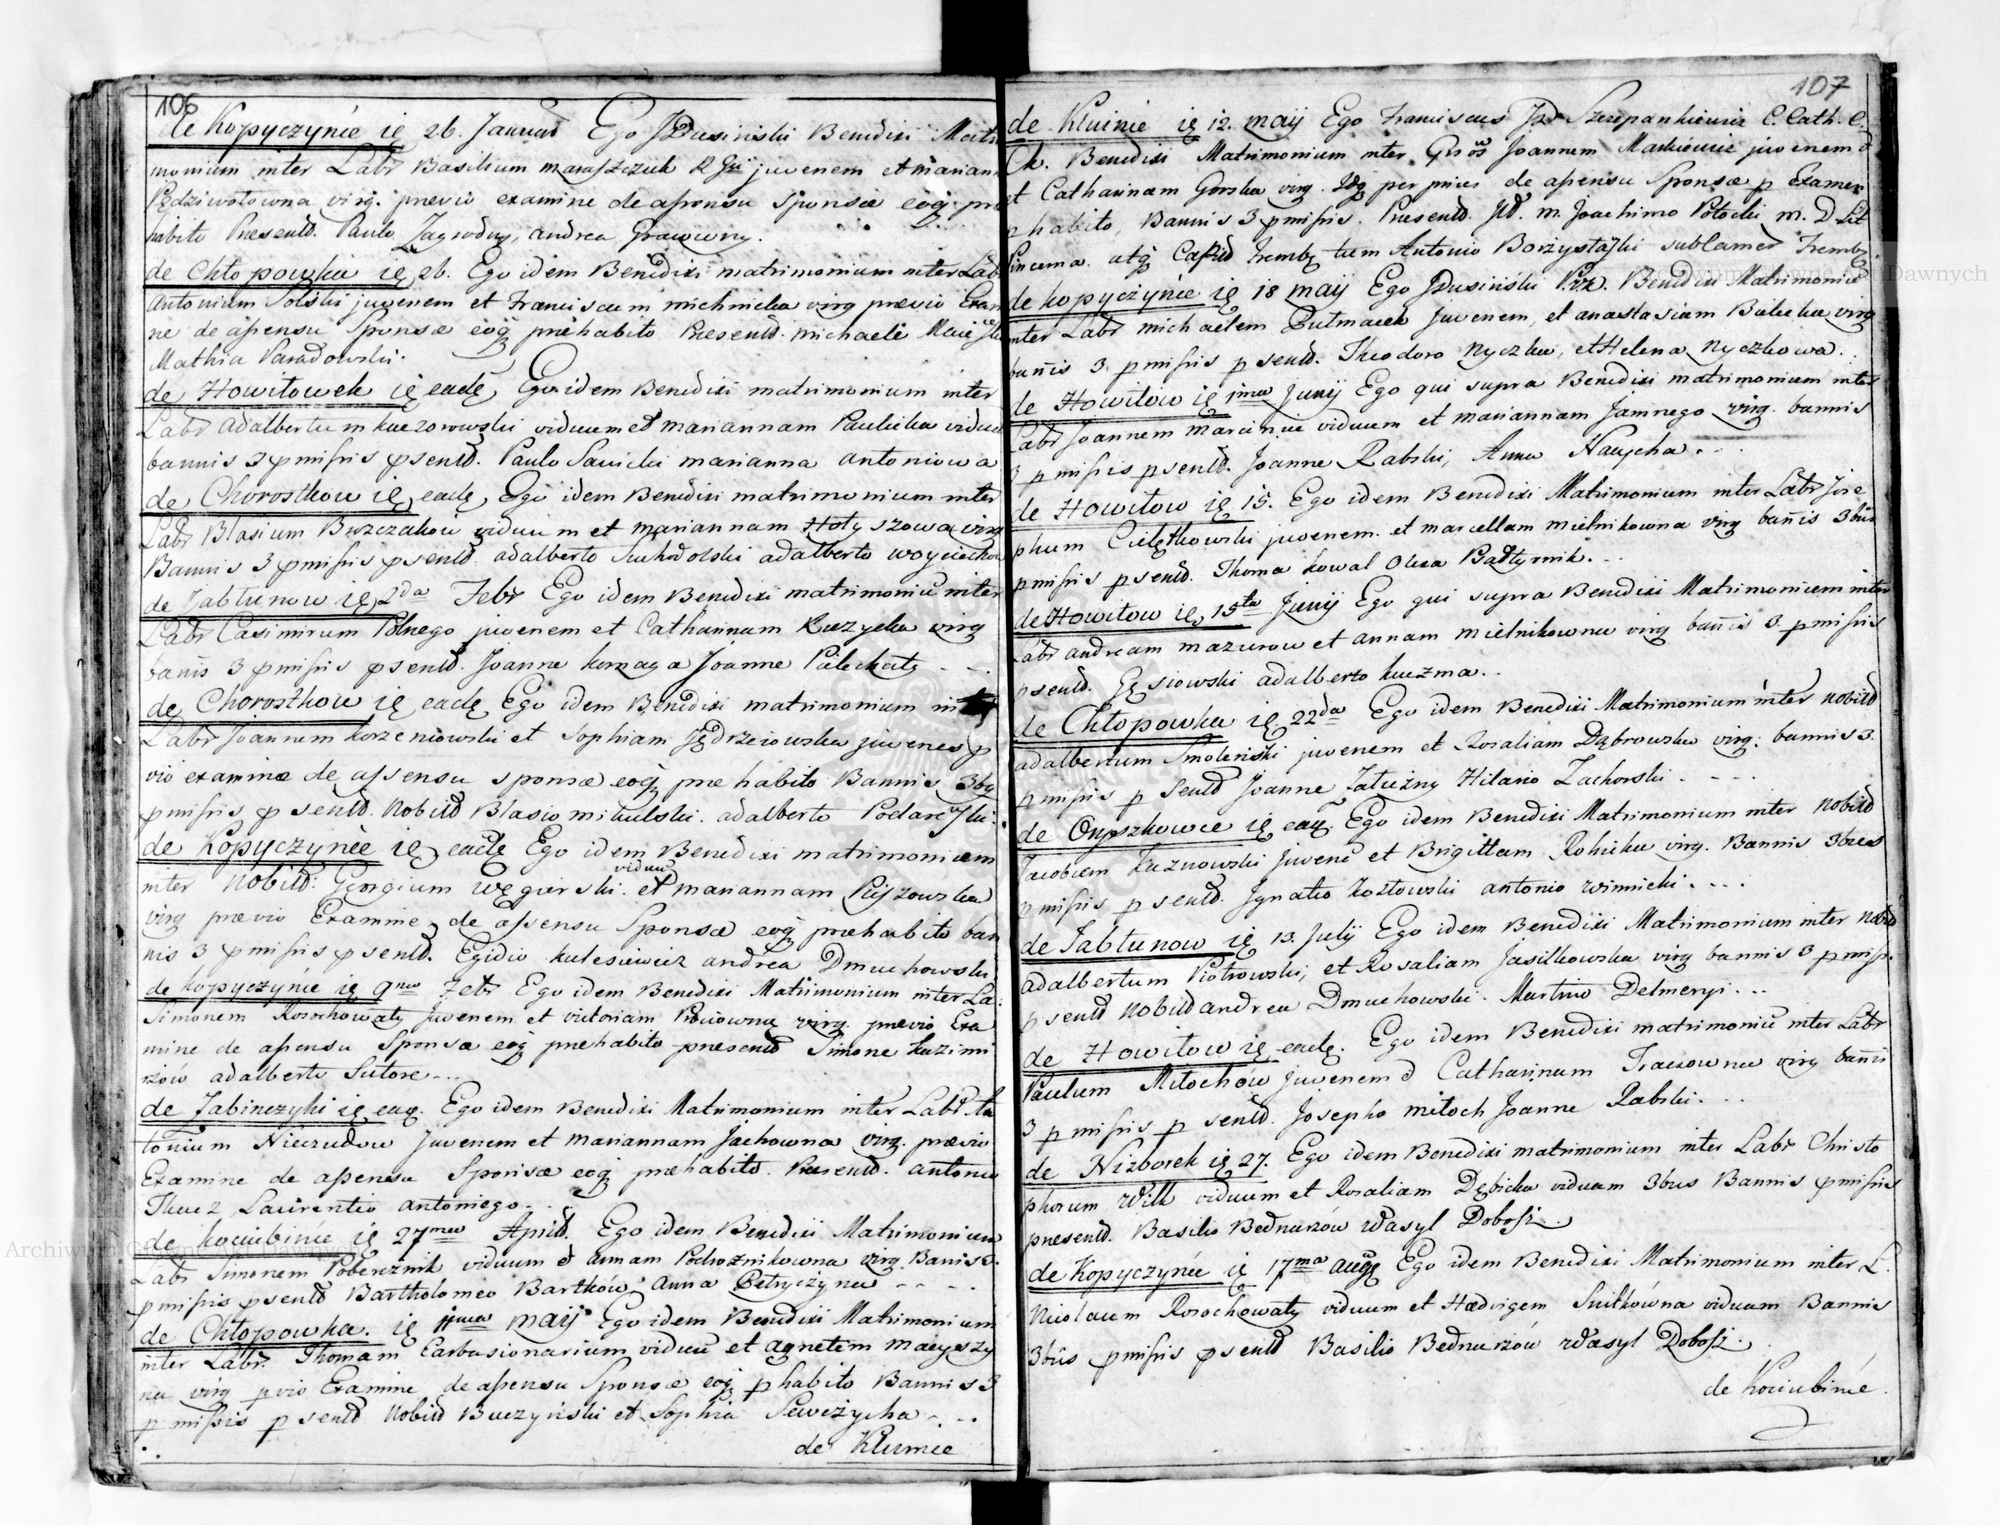 106
de Kopyczyńce ię 26. Januar Ego JDusinski Benedixi Matri
monium inter Labr Basilium maraszczuk juvenem et Mariann
Pędziwotowna virg. prævio examine de assensu Sponsæ eoq præ
habito Præsentd. Paulo Zagrodny, andrea Grawowny.
de Chłopowka ię 26. Ego idem Benedixi matrimonium inter Lab
Antonium Solski juvenem et Franciscam michnicka virg prævio Exam
ne de assensu Sponsæ eoq præhabito Præsentd. michaele
Mathia Paradowski.
de Howiłowek ię eadę, Ego idem Benedixi matrimonium inter
Labr adalbertum kaczorowski viduum et mariannam Paulicka vidua
bannis 3 pmissis psentd. Paulo Sawicki marianna antoniowa
de Chorostkow ię eadę, Ego idem Benedixi matrimonium inter
Labr Blasium Burczakow viduum et mariannam Hołyszowa virg
Bannis 3 pmissis psentd. adalberto Suchodolski adalberto woyciecho
de Jabłunow ię 2da Febr Ego idem Benedixi matrimoniu inter
Labr Casimirum Polnego juvenem et Catharinam Kuzycka virg
banis 3 pmissis psentd. Joanne komaga Joanne Palichaty
de Chorostkow ię eadę Ego idem Benedixi matrimonium int
Labr Joannem korzeniowski et Sophiam Jędrzeiowska juvenes p
vio examine de assensu sponsæ eoq præ habito Bannis 3bq
pmissis psentd. Nobild Blasio mikulski. adalberto
de Kopyczyńce ię eadę Ego idem Benedixi matrimonium
viduu
inter Nobild: Gengium Węgierski. et mariannam Puszowska
virg prævio Examine, de assensu Sponsæ eoq præhabito ban
nis 3 pmissis psentd. Egidio kulesiewicz andrea Dmuchowski
de kopyczyńce ię 9na Febr Ego idem Benedixi Matrimonium inter La.
Simonem Rosochowaty juvenem et victoriam virg. prævio Exa
mine de assensu Sponsæ eoq præhabito præsentd Simone kazimi
rzow adalberto Sutore
de Jabinczyki ię eaq. Ego idem Benedixi Matrimonium inter Labr An
tonium Niezudow juvenem et mariannam Jachowna virg. prævio
Examine de assensu Sponsæ eoq præhabito. Præsentd. antonio
Tkacz Laurentio antoniego.
de kociubince ię 27ma Aprild. Ego idem Benedixi Matrimonium
Labr Simonem Pobereznik viduum et annam Podroznikowna virg. Banis 3.
pmissis psentd Bartholomeo Bartkow, Anna Petryczyna
de Chłopowka. ię 11ma maÿ Ego idem Benedixi Matrimonium
inter Labr. Thomam Carbasionarium viduu et agnetem macyszy
na virg pvio Examine de assensu Sponsæ eoq phabito Bannis 3
p missis psentd Nobild Buczyński et Sophia Sewczycha
de Klumie
107
de Kluinie ię 12. maÿ Ego Franciscus Szczepankiewicz C. Cath. C.
Ch. Benedixi Matrimonium inter Joannem Markiewicz juvenem d
et Catharinam Gorska virg. de assensu Sponsæ p Examen
p habito, Bannis 3 pmissis. Præsentd. m. Joachimo Potocki m. D
Pincerna. atq tum Antonio Borzystoyski
de kopyczyńce ię 18 maÿ Ego JDusiński Benedixi Matrimoniu
inter Labr michaelem Gutmacek juvenem, et anastasiam Bialecka virg
banis 3 pmissis psentd. Theodoro Nyczka, et Helena Nyczkowa.
de Howiłow ię 1ma Junÿ Ego qui supra Benedixi matrimonium inter
Labr Joannem viduum et mariannam Jamnego virg. bannis
3 pmissis psentd. Joanne Rabski, Anna Haycha.
de Howiłow ię 15. Ego idem Benedixi Matrimonium inter Labr Jose
phum Cielętkowski juvenem. et marcellam mielnikowna virg banis 3bus
pmissis psentd. Thoma kowal Olexa
de Howiłow ię, 15ta Junÿ Ego qui supra Benedixi Matrimonium inter
Labr andream mazurow et annam mielnikowna virg banis 3. pmissis
psentd. Gęsiowski adalberto kuczma..
de Chłopowka ię. 22da Ego idem Benedixi Matrimonium inter nobild
adalbertum Smoleński juvenem et Rosaliam Dąbrowska virg: bannis 3.
pmissis p sentd Joanne Załużny Hilario Zachorski.
de Oryszkowce ię eaq. Ego idem Benedixi Matrimonium inter Nobild
Jacobum juvenē et Brigittam Rolnika virg. Bannis 3bus
pmissis p sentd. Ignatio Kozłowski antonio winnicki.
de Jabłunow ię 13. Julÿ Ego idem Benedixi Matrimonium inter Nobild
adalbertum Piotrowski, et Rosaliam Jasilkowska virg bannis 3 pmiss.
psentd Nobild andrea Dmuchowski. Martino Delmeryi.
de Howiłow ię, eadę. Ego idem Benedixi matrimoniu inter Labr
Paulum Miłochów juvenem d Catharinam Tracowna virg banis
3 pmissis p sentd. Josepho miłoch Joanne Rabski.
de Nizborek ię 27. Ego idem Benedixi matrimonium inter Labr Christo
phorum Wilk viduum et Rosaliam Dębicka viduam 3bus Bannis pmissis
præsentd. Basilio Bednarzów Wasyl Dobosz
de Kopyczyńce ię 17ma augę Ego idem Benedixi Matrimonium inter L.
Nicolaum Rosochowaty viduum et Hædvigem Suitkówna viduam Bannis
3bus pmissis psentd Basilio Bednarzów Wasyl Dobosz.
de kociubince